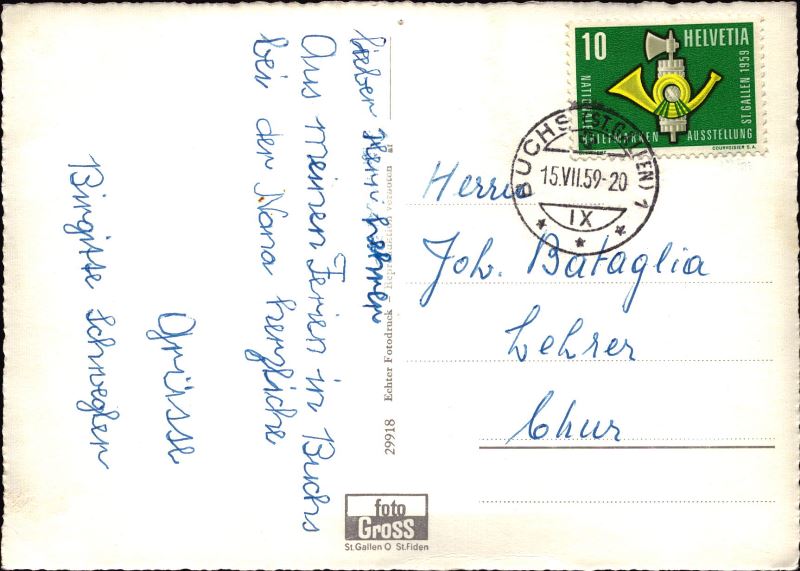 Lieber Herr Lehrer
Aus meinen Ferien in Buchs
bei der Nona herzliche
Grüsse
Birgitte Schwegler
29918 Echter Fotodruck — Reproduktion verboten
foto
Gross
St.Gallen O St.Fiden
10 HELVETIA
NATIONALE BRIEFMARKEN AUSSTELLUNG ST. GALLEN 1959
COURVOISIER S.A.
BUCHS (ST. GALLEN) 1
15.VII.59-20
IX
Herrn
Joh. Bataglia
Lehrer
Chur